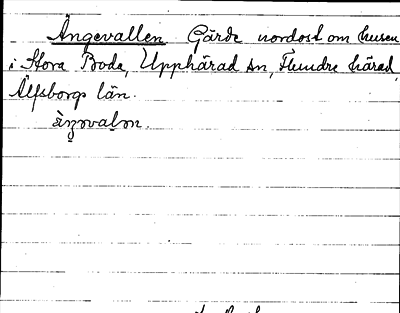 Ängevallen Gärde nordost om husen
i Stora Boda, Upphärad sn, Flundre härad,
Älfsborgs län.